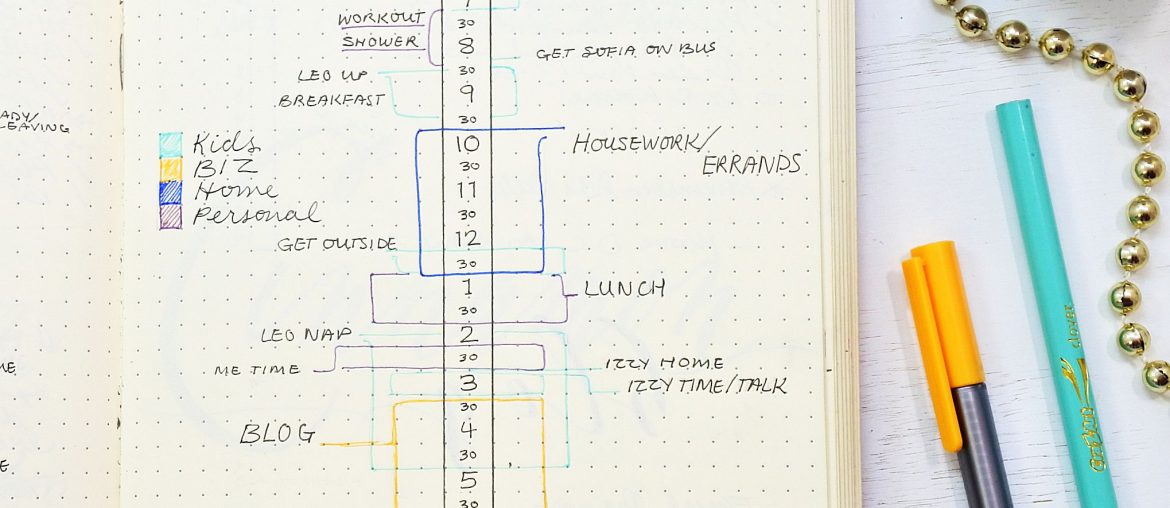 WORKOUT
30
SHOWER
8
GET SOFIA ON BUS
LEO UP
30
BREAKFAST
9
30
ADY/
LEAVING
Kids
BIZ
Home
Personal
10
HOUSEWORK/
ERRANDS
30
11
30
12
GET OUTSIDE
30
1
LUNCH
30
LEO NAP
2
30
IZZY HOME
ME TIME
3
IZZY TIME/TALK
30
BLOG
4
30
5
30
clover